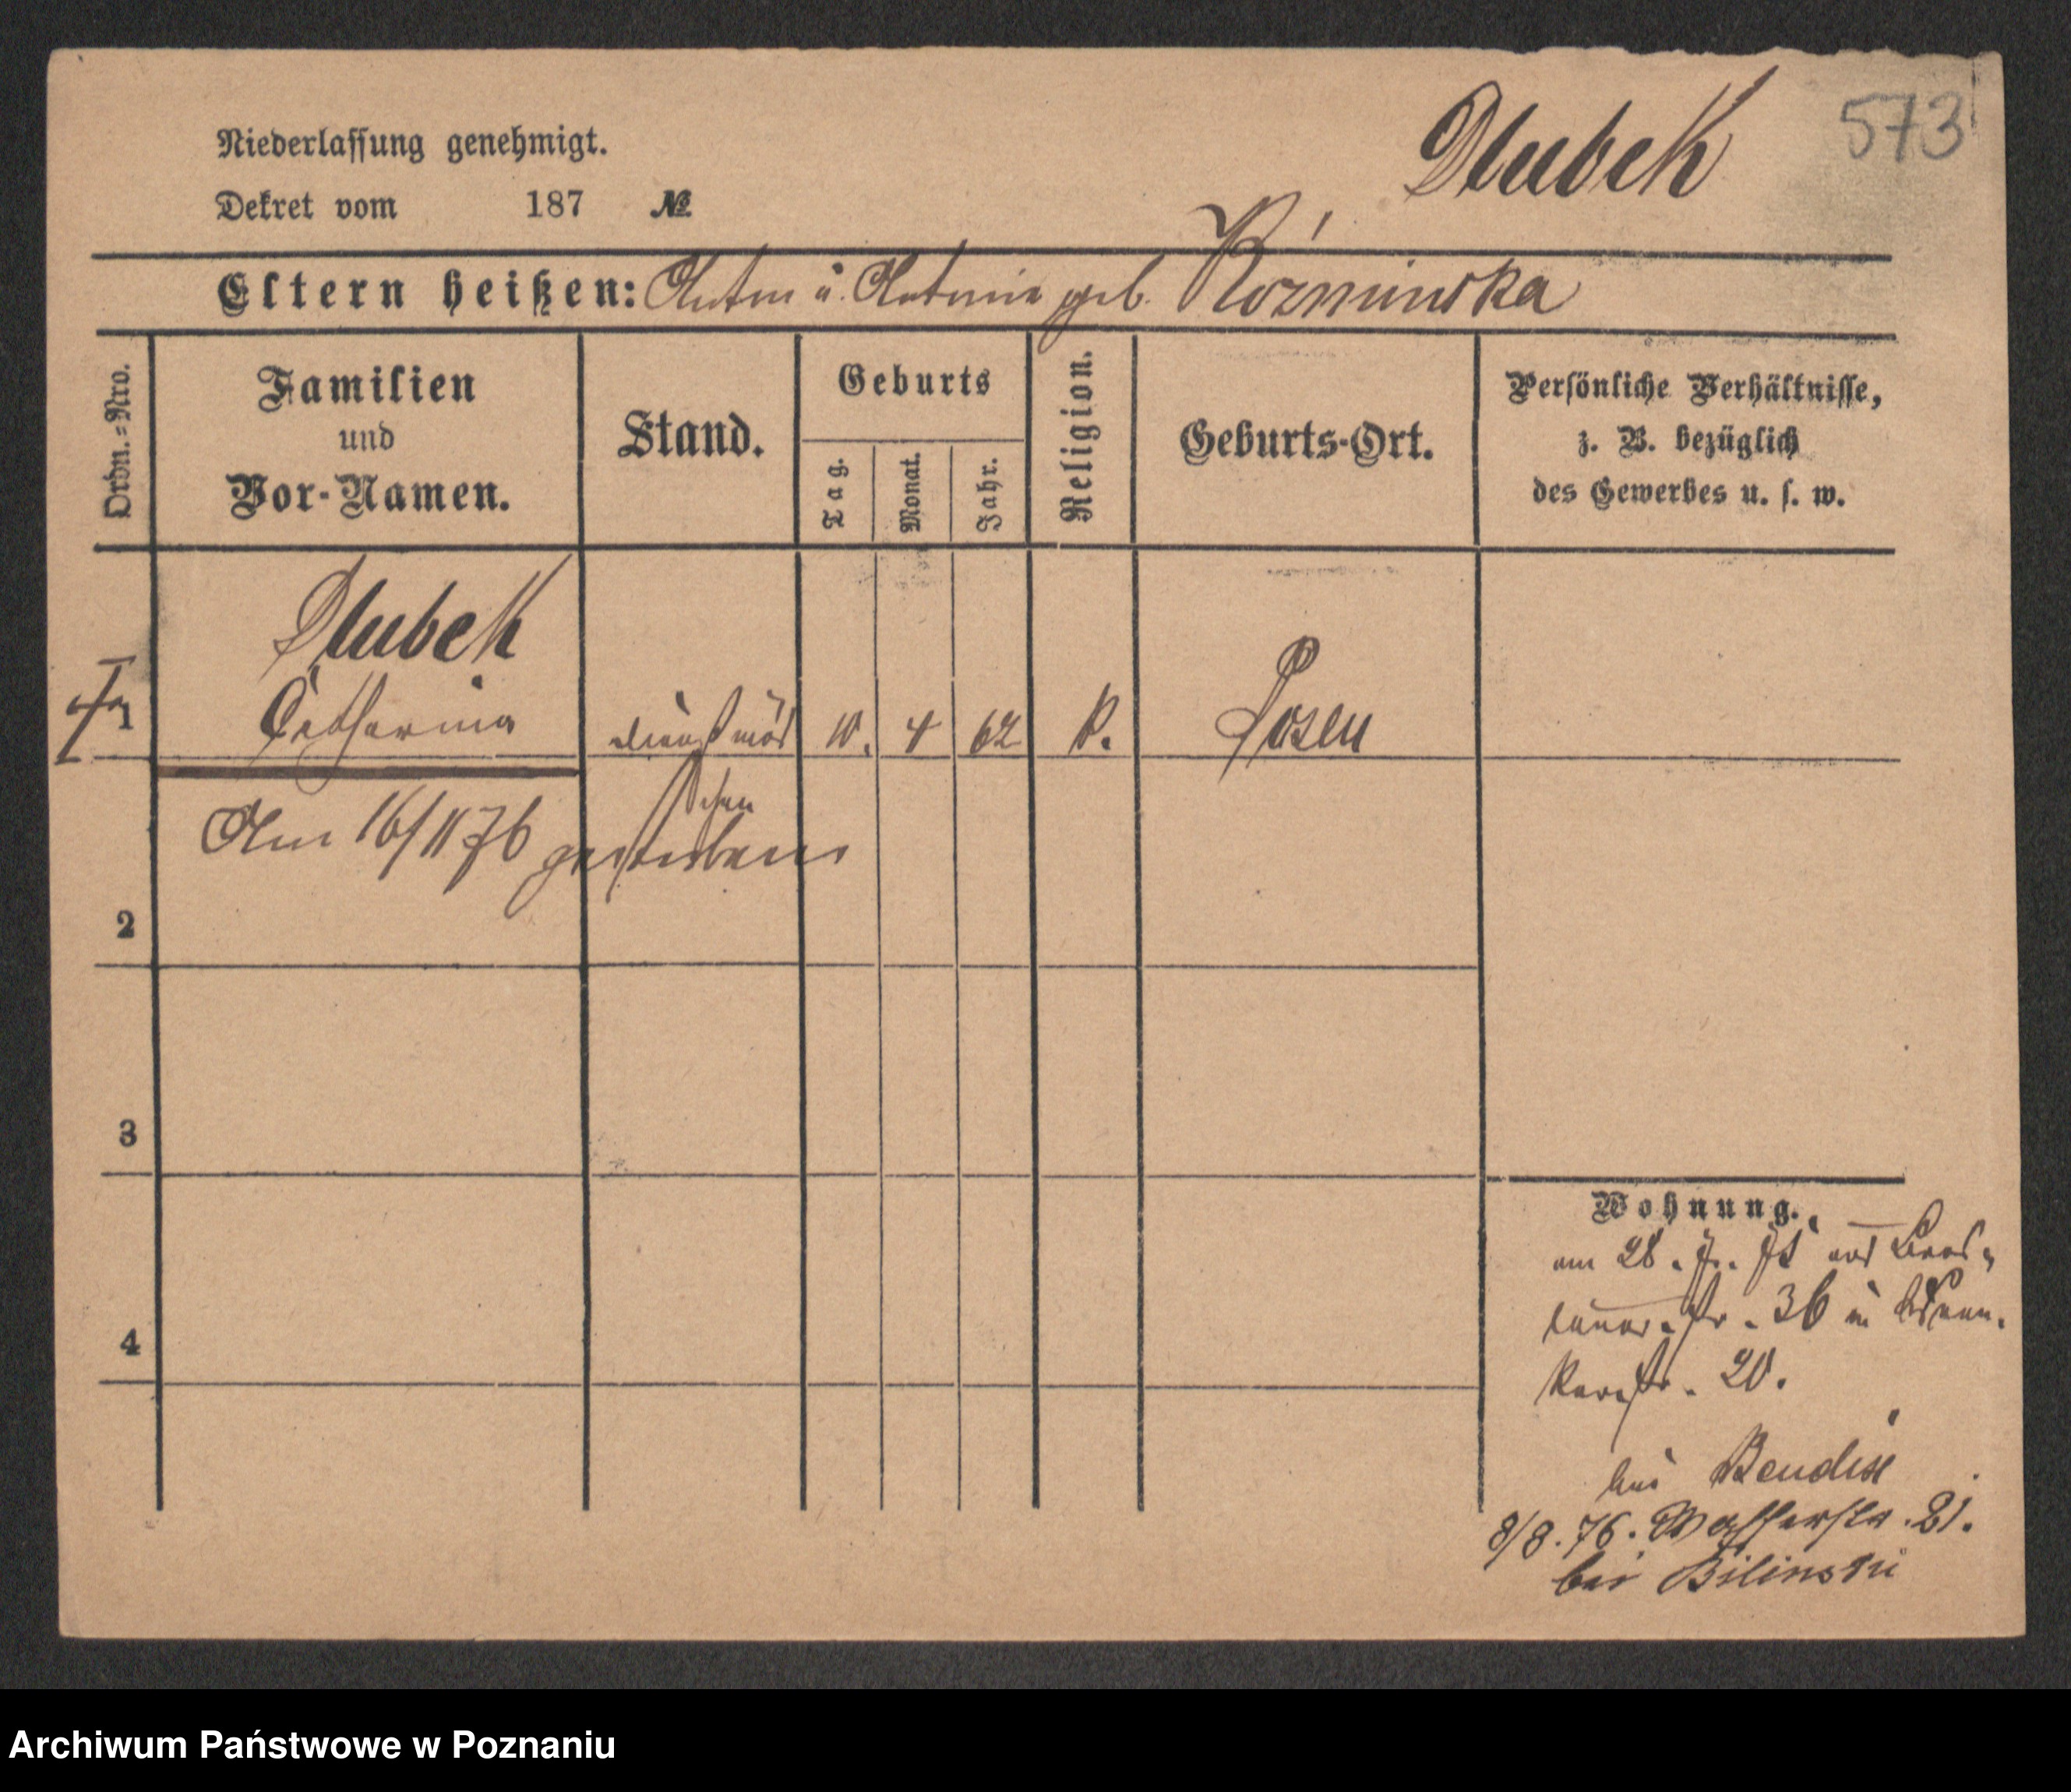 573
Dlubek
Niederlassung genehmigt.
Dekret vom 187 №
Eltern heißen: Anton u. Antonie geb. Rózminska
Ordn.-Nro.
Familien
und
Vor-Namen.
Stand.
Geburts
Tag.
Monat.
Jahr.
Religion.
Geburts-Ort.
Persönliche Verhältnisse,
z. B. bezüglich
des Gewerbes u. s. w.
Dlubek
1 Catharina 10. 4 62 k. Posen
Am 16/11 76 gestorben
2
3
4
Wohnung.
am 28. 7. 75 aus Bres-
lauer-str. 36 n
str. 20.
bei
8/8. 76. Wasserstr. 21.
bei Bilinski
Archiwum Państwowe w Poznaniu